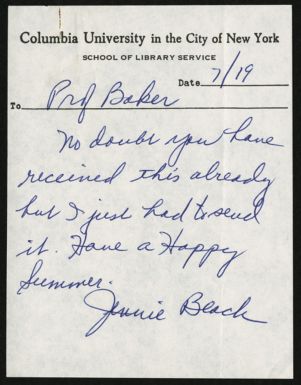 Columbia University in the City of New York
SCHOOL OF LIBRARY SERVICE
Date 7/19
To Prof Baker
No doubt you have
received this already
but I just had to send
it. Have a Happy
Summer.
Jennie Beach